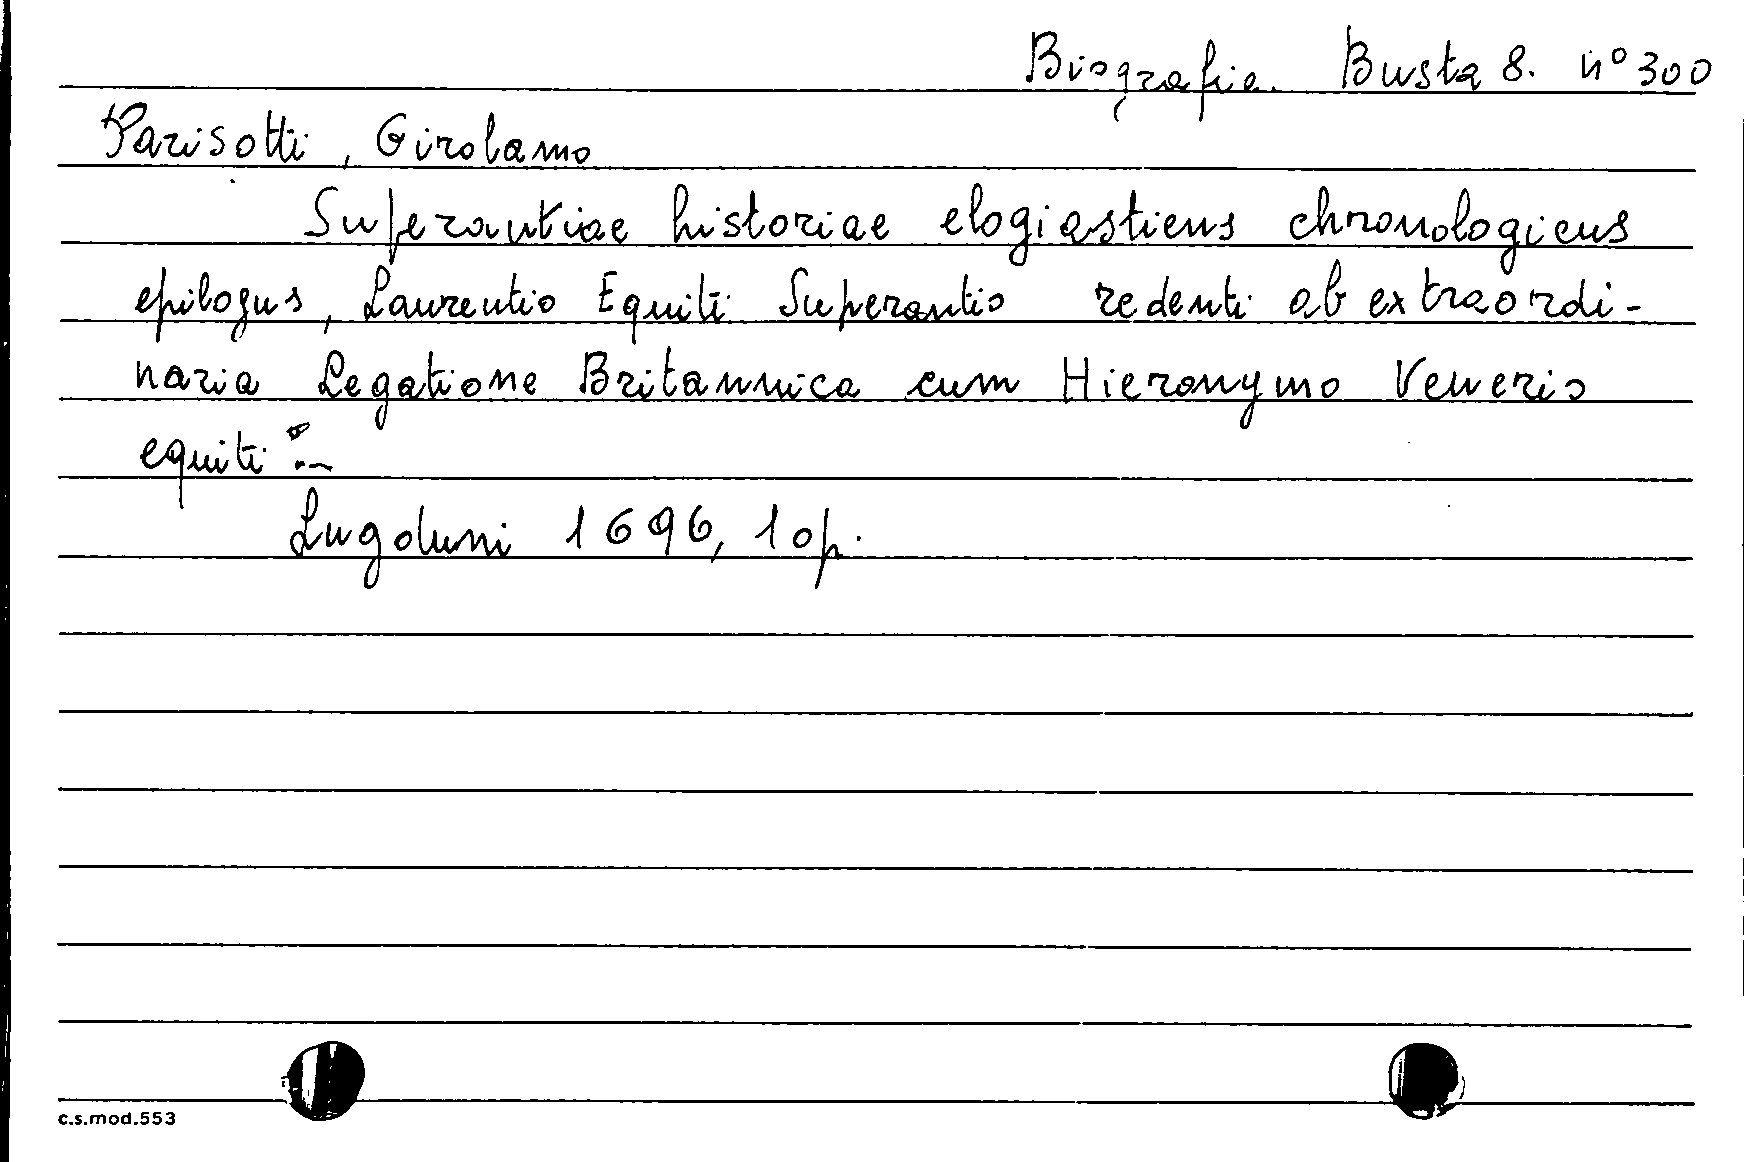 Biografie. Busta 8. n° 300
Parisotti, Girolamo
Superantiae historiae elogiasticus chronologicus
epilogus, Laurentio Equiti Superantio redenti ab extraordi-
naria Legatione Britannica cum Hieronymo Venerio
equiti
Lugduni 1696, 10p.
c.s.mod.553